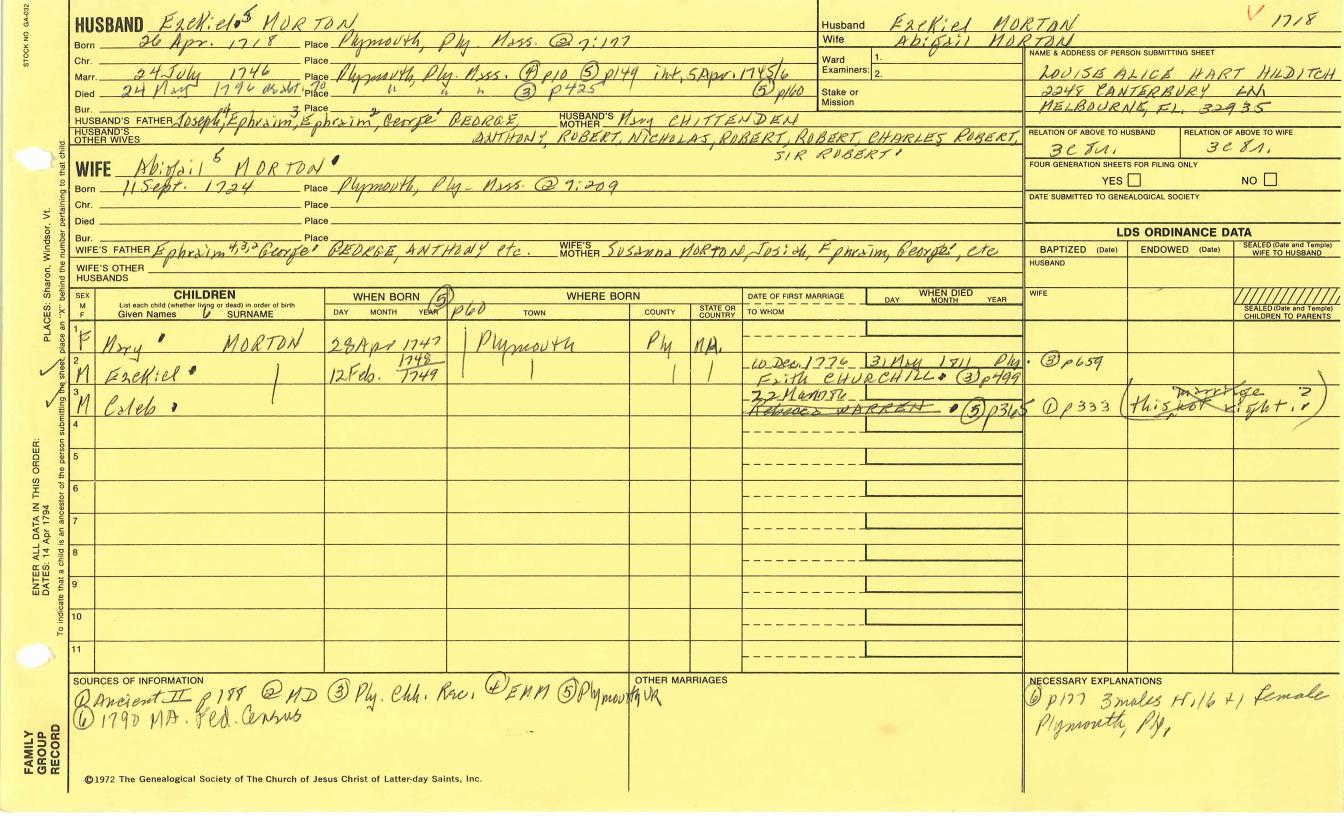 STOCK NO. GA-032
HUSBAND Ezekiel 5 MORTON
Born 26 Apr. 1718 Place Plymouth, Ply. Mass. ② 7:177
Chr. Place
Marr. 24 July 1746 Place Plymouth, Ply. Mass. ④ p10 ⑤ p149 int, 5 Apr. 1745/6
Died 24 May 1796 Place " " " ③ p425 ⑤ p160
Bur. Place
HUSBAND'S FATHER Joseph 4, Ephraim 3, Ephraim 2, George 1 GEORGE, HUSBAND'S MOTHER Mary CHITTENDEN
HUSBAND'S OTHER WIVES ANTHONY, ROBERT, NICHOLAS, ROBERT, ROBERT, CHARLES ROBERT,
SIR ROBERT
WIFE Abigail 5 MORTON
Born 11 Sept. 1724 Place Plymouth, Ply- Mass. ② 7:209
Chr. Place
Died Place
Bur. Place
WIFE'S FATHER Ephraim 4,3,2 George 1 GEORGE, ANTHONY etc. WIFE'S MOTHER Susanna MORTON, Josiah, Ephraim, George 1, etc
WIFE'S OTHER HUSBANDS
Husband Ezekiel MORTON 1718
Wife Abigail MORTON
Ward Examiners: 1.
2.
Stake or Mission
NAME & ADDRESS OF PERSON SUBMITTING SHEET
LOUISE ALICE HART HILDITCH
2248 CANTERBURY LN.
MELBOURNE, FL. 32935
RELATION OF ABOVE TO HUSBAND RELATION OF ABOVE TO WIFE
3C 8r. 3C 8r.
FOUR GENERATION SHEETS FOR FILING ONLY
YES NO
DATE SUBMITTED TO GENEALOGICAL SOCIETY
LDS ORDINANCE DATA
BAPTIZED (Date) ENDOWED (Date) SEALED (Date and Temple) WIFE TO HUSBAND
HUSBAND
WIFE
SEALED (Date and Temple) CHILDREN TO PARENTS
SEX M F CHILDREN WHEN BORN ⑤ p60 WHERE BORN DATE OF FIRST MARRIAGE WHEN DIED
List each child (whether living or dead) in order of birth
Given Names 6 SURNAME DAY MONTH YEAR TOWN COUNTY STATE OR COUNTRY TO WHOM DAY MONTH YEAR
1 F Mary MORTON 28 Apr 1747 Plymouth Ply MA.
2 M Ezekiel 12 Feb. 1748/1749 10 Dec. 1776 31 May 1811 Ply. ③ p659
Faith CHURCHILL ③ p499
3 M Caleb 22 Mar
Rebecca WARREN ⑤ p365 ① p333 (this not marriage right. ?)
4
5
6
7
8
9
10
11
SOURCES OF INFORMATION
① Ancient II p188 ② MD ③ Ply. Chh. Rec. ④ EMM ⑤ Plymouth VR
⑥ 1790 MA. Fed. Census
OTHER MARRIAGES
NECESSARY EXPLANATIONS
⑥ p177 3 males Hi.16 +1 female
Plymouth, Ply,
©1972 The Genealogical Society of The Church of Jesus Christ of Latter-day Saints, Inc.
PLACES: Sharon, Windsor, Vt.
To indicate that a child is an ancestor of the person submitting the sheet, place an "X" behind the number pertaining to that child.
ENTER ALL DATA IN THIS ORDER:
DATES: 14 Apr 1794
FAMILY GROUP RECORD